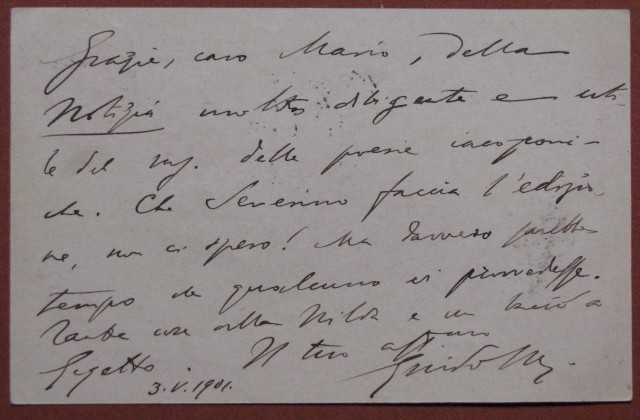 Grazie, caro Mario, della
Notizia molto diligente e uti-
le del ms. delle poesie iacoponi-
che. Che Severino faccia l'edizio
ne, non ci spero! Ma davvero sarebbe
tempo che qualcuno vi provvedesse.
Tante cose alla Nilda e un bacio a
Gigetto. Il tuo aff.mo
3.V.1901. Guido